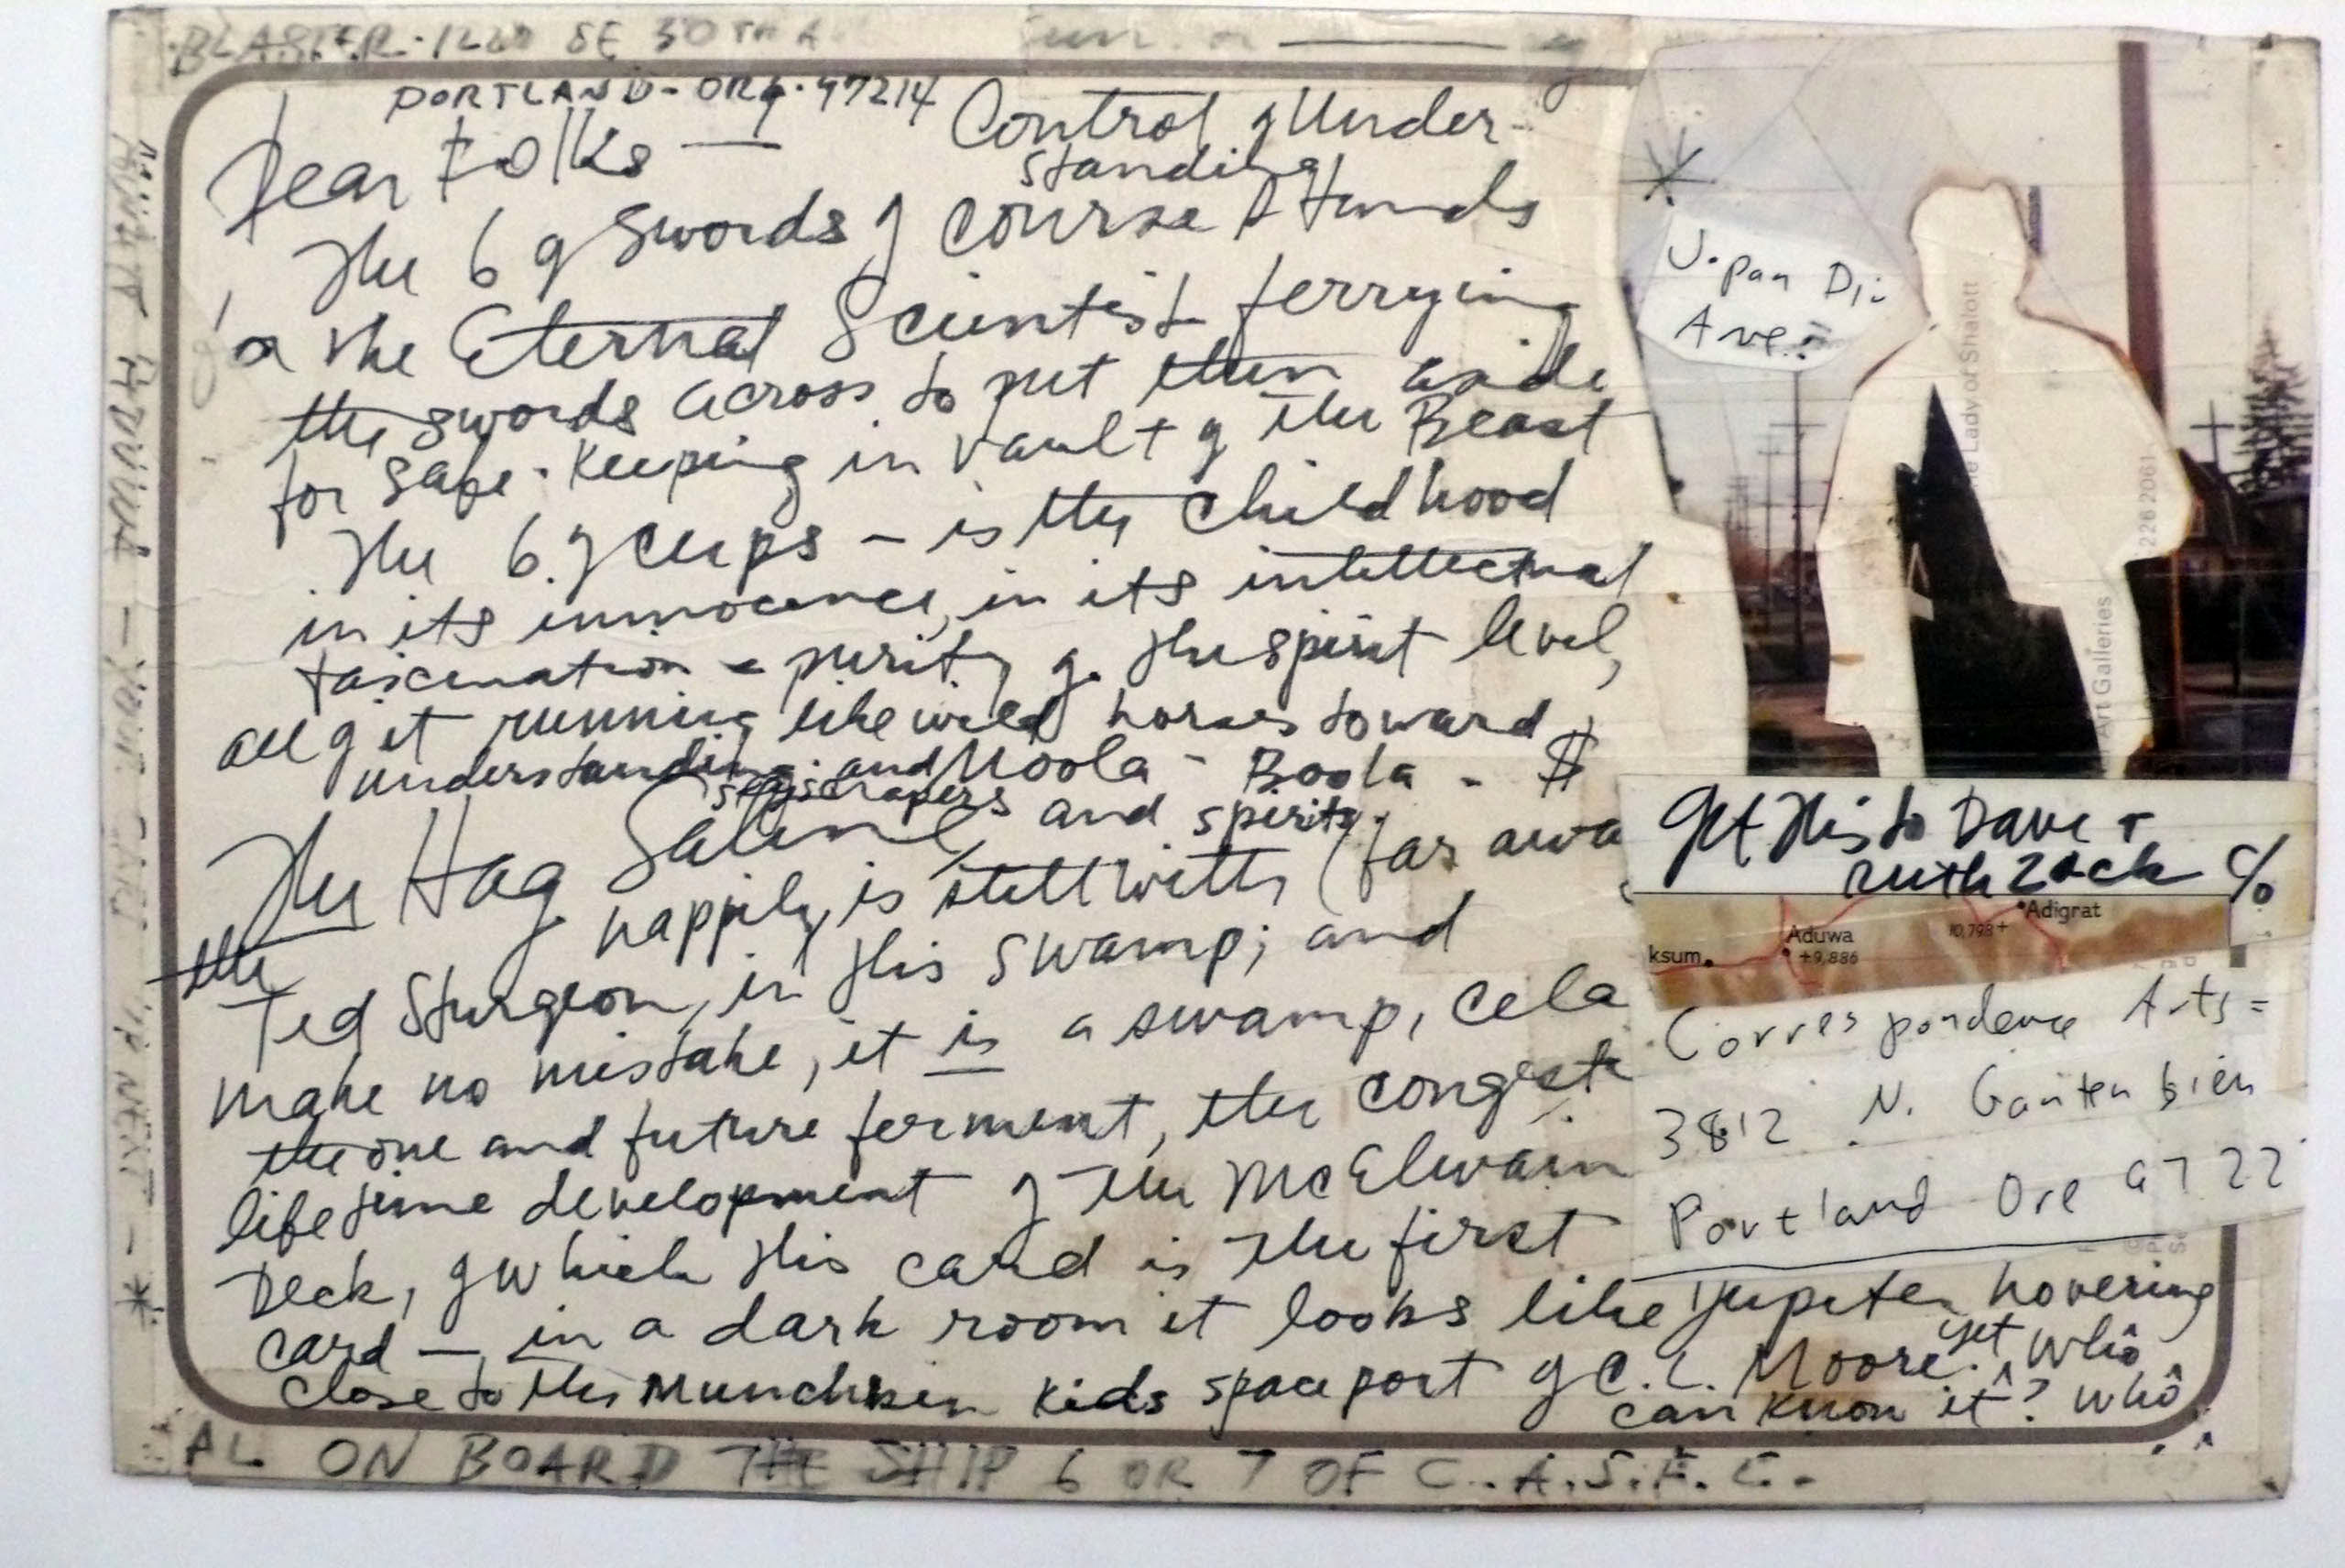 BLASTER · 1220 SE 50TH A
PORTLAND - ORG. 97214
Dear Folks — Control of Under-
standing
The 6 of Swords of course Stands
the Eternal Scientist ferrying
the swords across to put them aside
for safe-keeping in vault of the Beast
The 6 of Cups — is the childhood
in its innocence, in its intellectual
fascination purity of the spirit level,
all of it running like wild horses toward
understanding and Moola - Boola - $
skyscrapers and spirits.
The Hag
happily, is still with (far awa
the
Ted Sturgeon, in this swamp; and
make no mistake, it is a swamp, Cela
the one and future ferment, the
lifetime development of the McElwain
Deck, of which this card is the first
card — in a dark room it looks like Jupiter hovering
close to the Munchkin Kids space port of C. L. Moore. yet who
can know it? who
AL ON BOARD THE SHIP 6 OR 7 OF C.A.S.F.C.
Ave.
The Lady of Shalott
2262061
Art Galleries
Get this to Dave +
Ruth Zack c/o
ksum
Aduwa
+9,886
10,798+
Adigrat
Correspondence Arts =
3812 N. Gantenbien
Portland Ore 9722